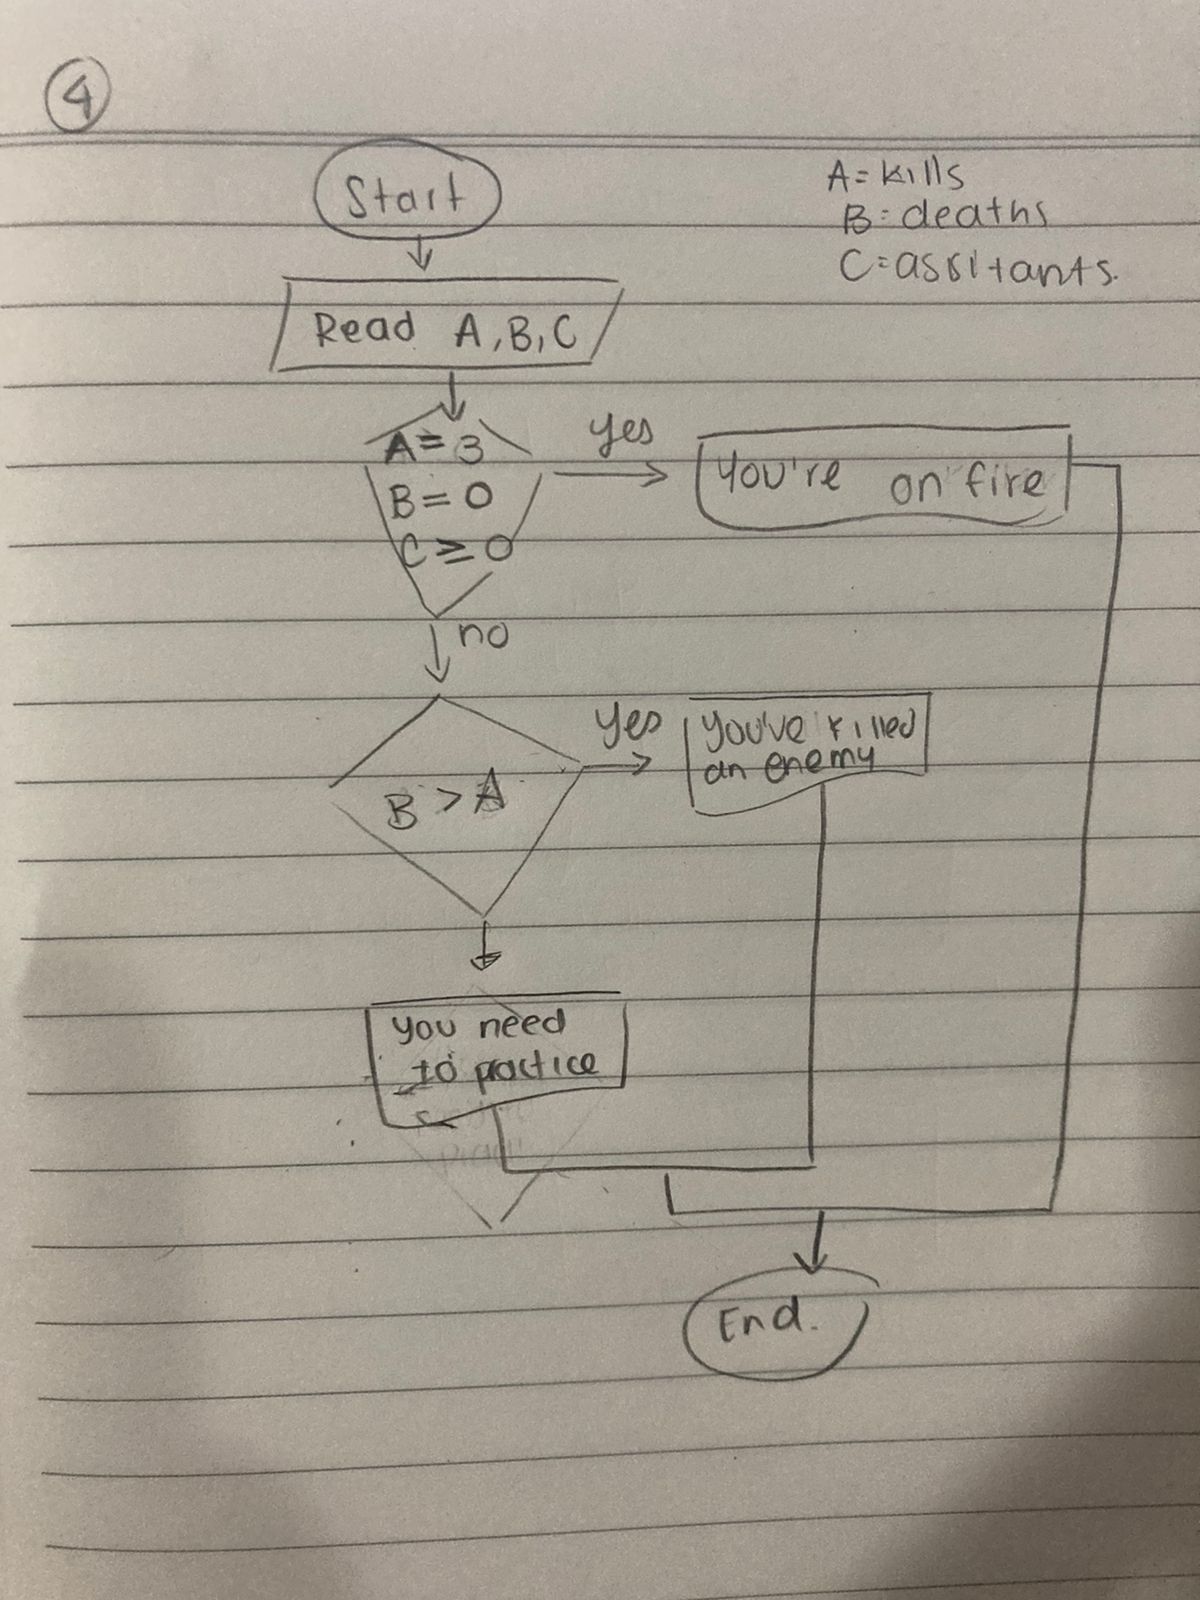 4
A = kills
B = deaths
C = assitants.
Start
Read A, B, C
A = 3
B = 0
C ≥ 0
yes
You're on fire
no
B > A
yes
you've killed
an enemy
you need
to practice
End.